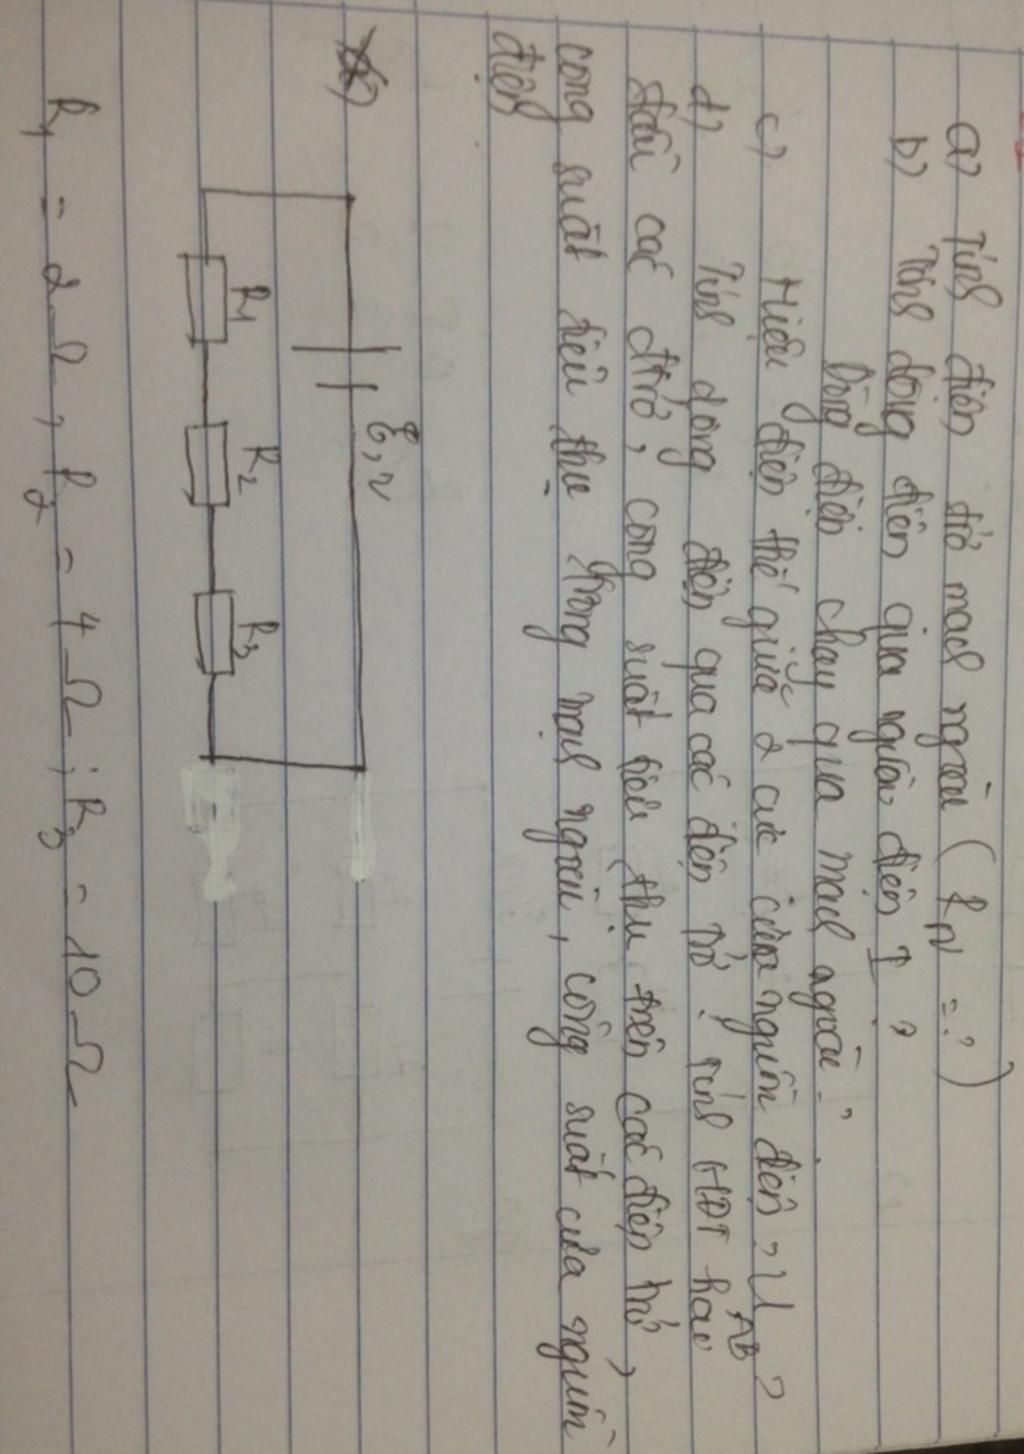 a) Tính điện trở mạch ngoài ( RN = ? )
b) Tính dòng điện qua nguồn điện I ?
Dòng điện chạy qua mạch ngoài ?
c) Hiệu điện thế giữa 2 cực của nguồn điện ? UAB ?
d) Tính dòng điện qua các điện trở ? Tính HĐT hai
đầu các đtrở, công suất tiêu thụ trên các điện trở,
công suất tiêu thụ trong mạch ngoài, công suất của nguồn
điện
ξ, r
R1 R2 R3
R1 = 2 Ω, R2 = 4 Ω ; R3 = 10 Ω